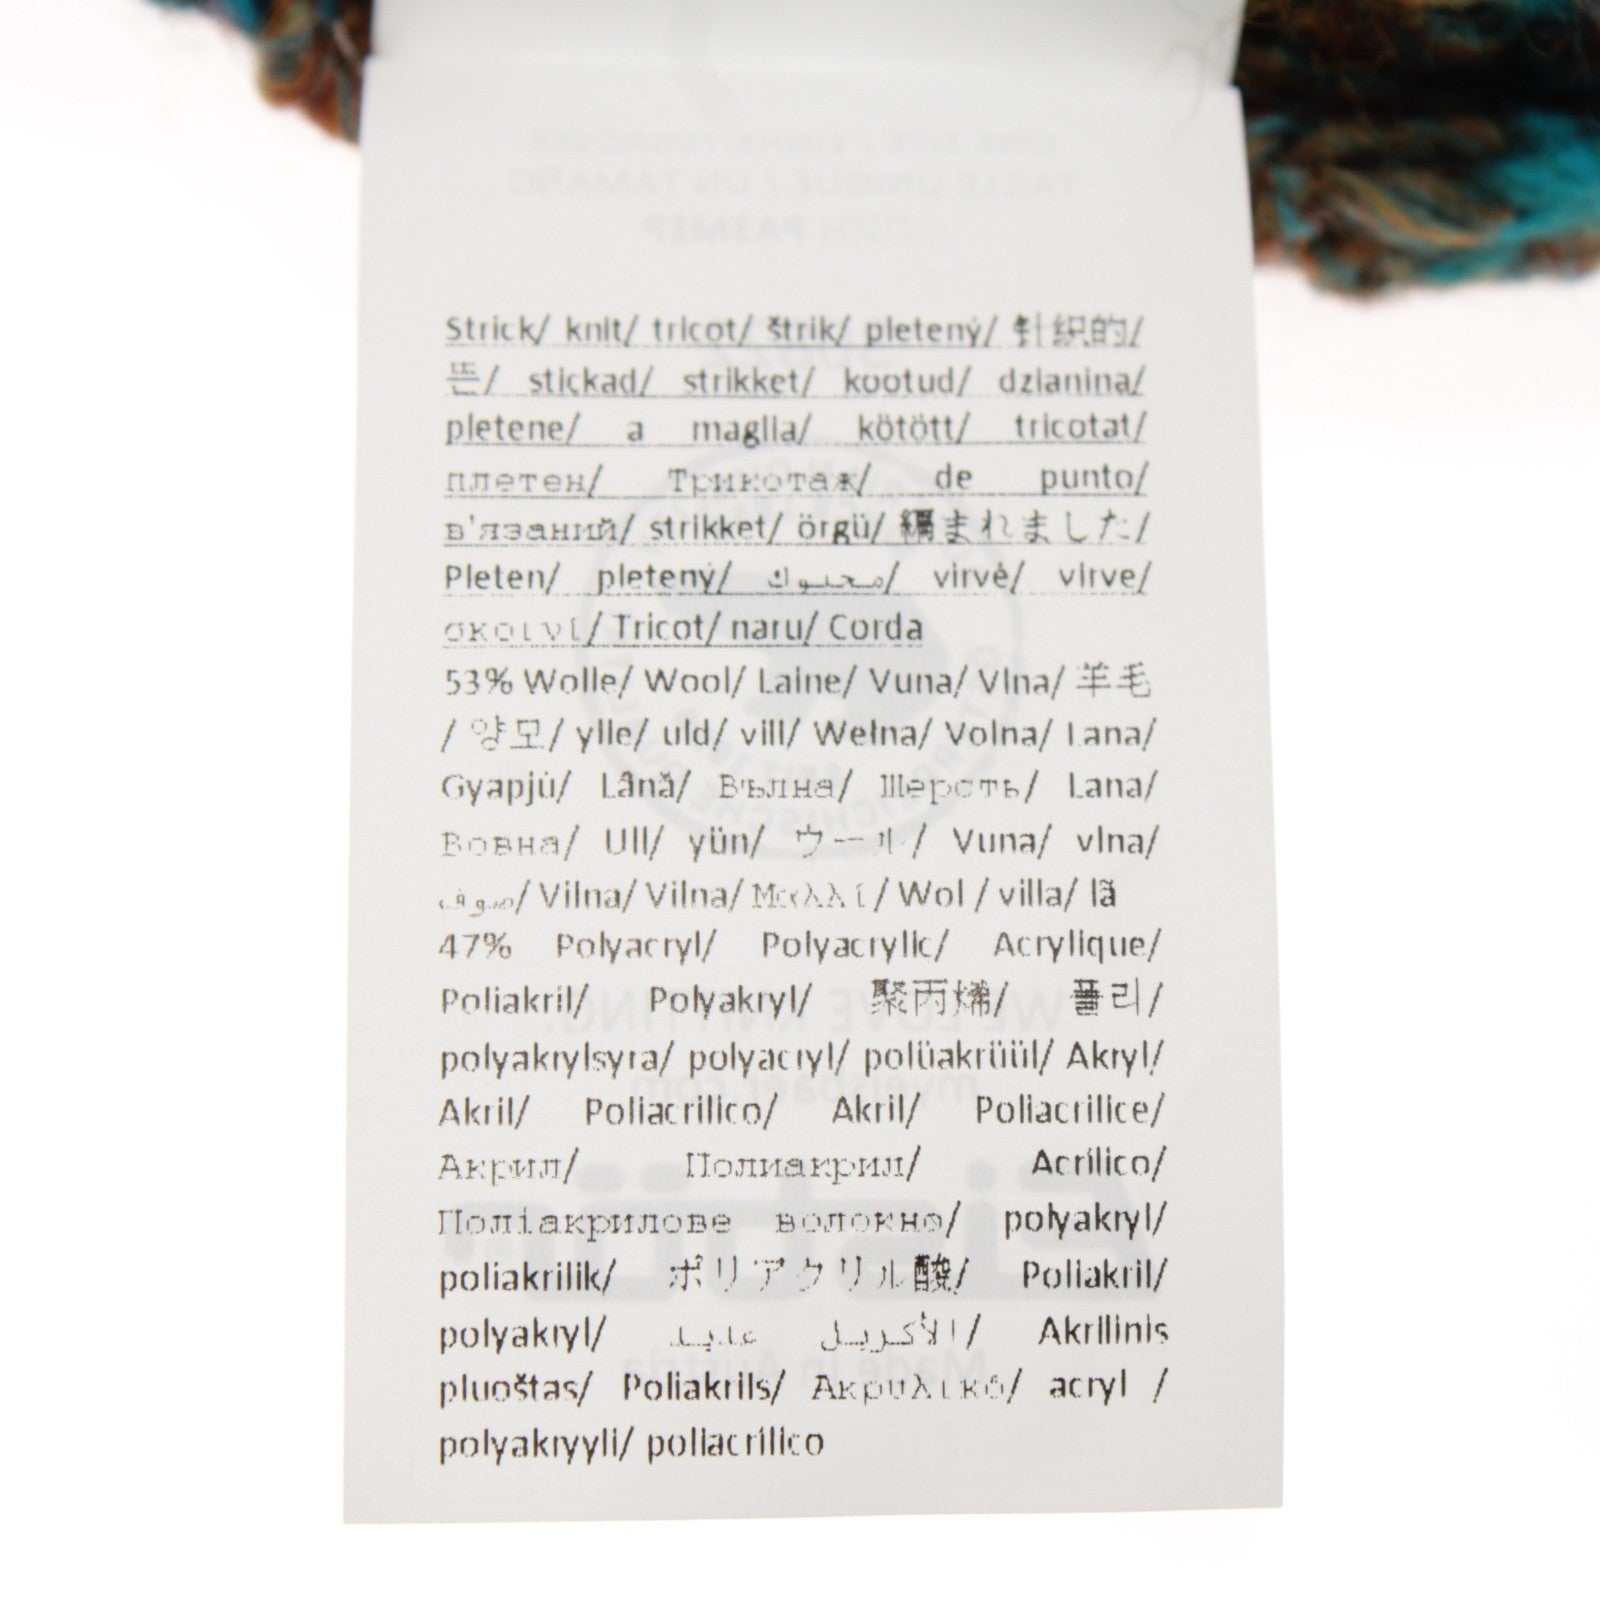 Strick/ knit/ tricot/ štrik/ pletený/ 针织的/
뜬/ stickad/ strikket/ kootud/ dzianina/
pletene/ a maglia/ kötött/ tricotat/
плетен/ Трикотаж/ de punto/
в'язаний/ strikket/ örgü/ 編まれました/
Pleten/ pletený/ محبوك/ virvė/ virve/
σκοινί/ Tricot/ naru/ Corda
53% Wolle/ Wool/ Laine/ Vuna/ Vlna/ 羊毛
/ 양모/ ylle/ uld/ vill/ Wełna/ Volna/ Lana/
Gyapjú/ Lână/ Вълна/ Шерсть/ Lana/
Вовна/ Ull/ yün/ ウール/ Vuna/ vlna/
صوف/ Vilna/ Vilna/ Μαλλί/ Wol / villa/ lã
47% Polyacryl/ Polyacrylic/ Acrylique/
Poliakril/ Polyakryl/ 聚丙烯/ 폴리/
polyakrylsyra/ polyacryl/ polüakrüül/ Akryl/
Akril/ Poliacrilico/ Akril/ Poliacrilice/
Акрил/ Полиакрил/ Acrílico/
Поліакрилове волокно/ polyakryl/
poliakrilik/ ポリアクリル酸/ Poliakril/
polyakryl/ الأكريل عديد/ Akrilinis
pluoštas/ Poliakrils/ Ακρυλικό/ acryl /
polyakryyli/ poliacrílico
ONE SIZE / EINHEITSGRÖSSE
TAILLE UNIQUE / UN TAMAÑO
ОДИН РАЗМЕР
WE LOVE KNITTING.
myeisbaer.com
Eisbär
Made in Austria